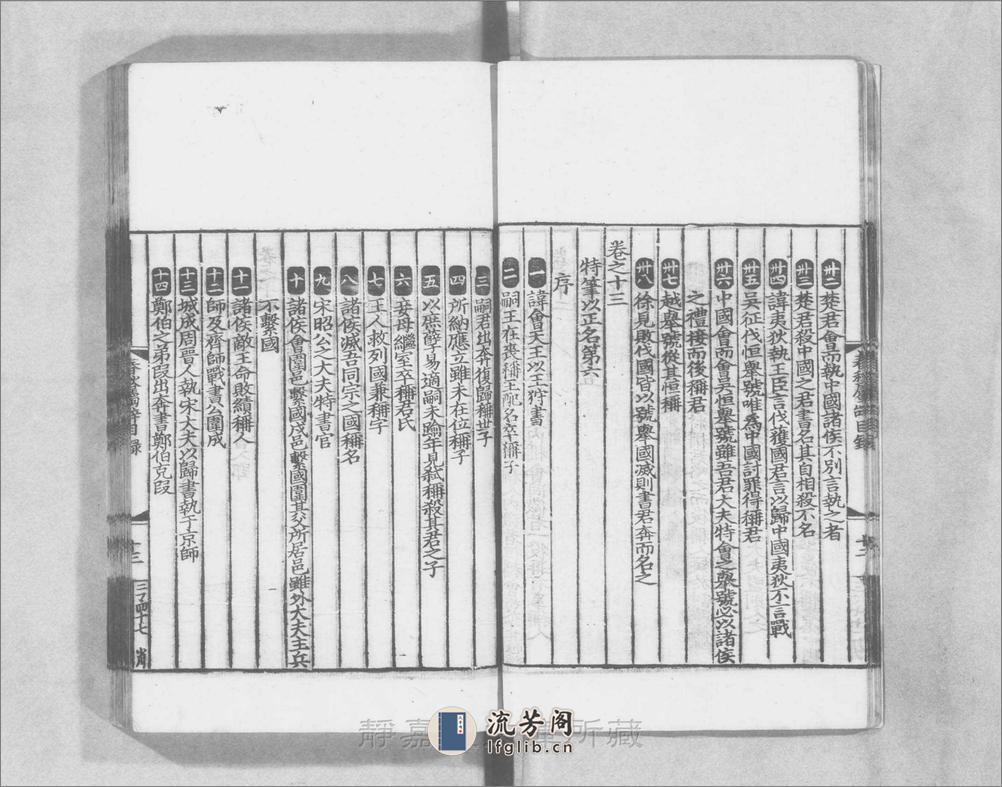 卅二 楚君會而執中國諸侯不別言執之者
卅三 楚君殺中國之君書名其自相殺不名
卅四 諱夷狄執王臣言伐獲國君言以歸中國夷狄不言戰
卅五 吳征伐恒舉號唯爲中國討罪得稱君
卅六 中國會而會吳恒舉號雖吾君大夫特會之舉號必以諸侯
之禮接而後稱君
卅七 越舉號從其恒稱
卅八 徐見敗伐國皆以號舉國滅則書君奔而名之
卷之十三
特筆以正名第六
序
一 諱會天王以王狩書
二 嗣王在喪稱王配名卒稱子
三 嗣君出奔復歸稱世子
四 所納應立雖未在位稱子
五 以庶孽易適嗣未踰年見弒稱殺其君之子
六 妾母繼室卒稱君氏
七 王人救列國兼稱字
八 諸侯滅吾同宗之國稱名
九 宋昭公之大夫特書官
十 諸侯會圍邑繫國戍邑繫國圍其父所居邑雖外大夫主兵
不繫國
十一 諸侯敵王命敗績稱人
十二 師及齊師戰書公圍成
十三 城成周晉人執宋大夫以歸書執于京師
十四 鄭伯之弟段出奔書鄭伯克段
十三
靜嘉
所藏
流芳阁
lfglib.cn